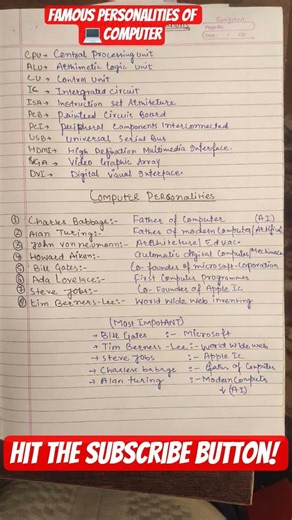 FAMOUS PERSONALITIES OF
💻 COMPUTER
CPU → Central Processing unit
ALU → Arithmetic Logic Unit
CU → Control Unit
IC → Intergrated circuit
ISA → Instruction Set Architeture
PCB → Painteed Circuis Board
PCI → Peripheral Components Interconnected
USB → Universal Serial Bus
HDMI → High Defination Multimedia Interface
VGA → Video Graphic Array
DVI → Digital Visual Interface
COMPUTER PERSONALITIES
① Charles Babbage:- Father of Computer (AI)
② Alan Turing:- Father of modern Computer/Artificial
③ John von neumann:- Architeture
④ Howard Aiken:- Automatic digital Computer
⑤ Bill Gates:- Co-founder of microsoft-Coporation
⑥ Ada Lovelace:- First Computer Programmer
⑦ Steve Jobs:- Co-Founder of Apple Ic
⑧ Tim Berners-Lee:- World Wide Web inventing
(MOST IMPOTANT)
→ Bill Gates :- Microsoft
→ Tim Berners-Lee:- World wide web
→ Steve Jobs :- Apple Ic
→ Charles babbage :- of Computer
→ Alan turing :- Modern Computer
↓ (AI)
HIT THE SUBSCRIBE BUTTON!